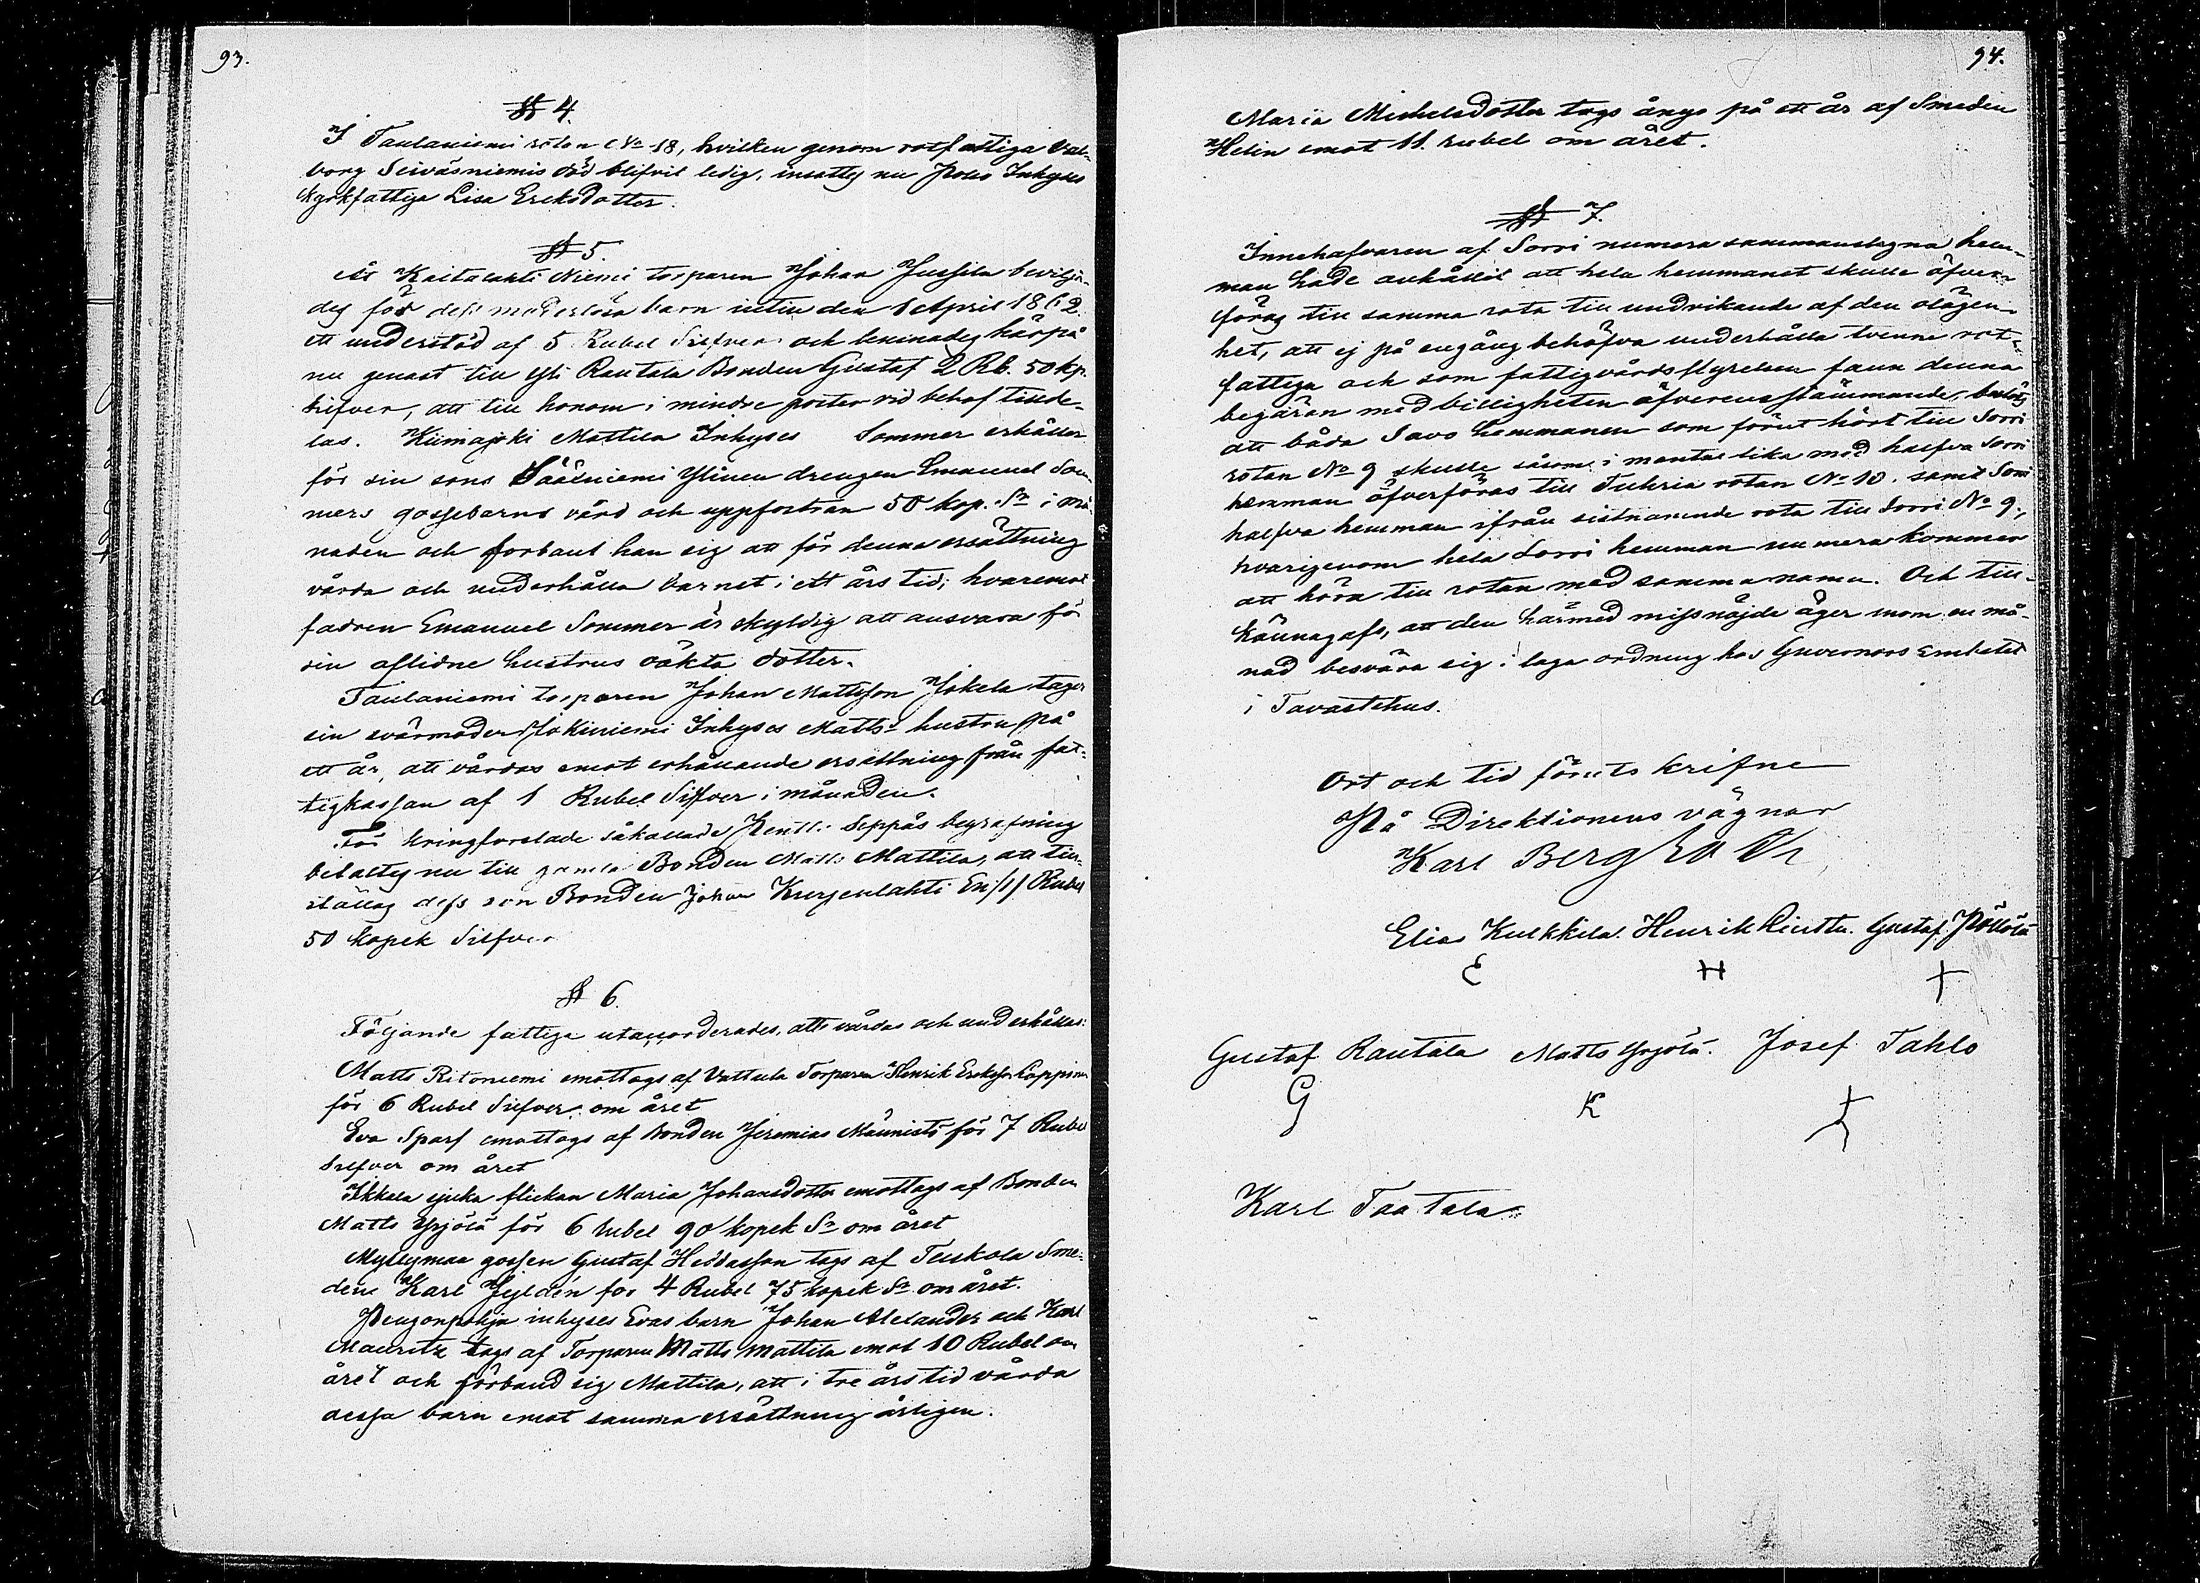 93.
§ 4.
I Taulaniemi rotan No 18, hvilken genom rotfattiga Val-
borg Seiväsniemis död blifvit ledig, insattes nu Inhyses
kyrkfattiga Lisa Ericsdotter.
§ 5.
Åt Kaitalahti Niemi torparen Johan Jussila bevilja-
des för dess moderlösa barn intill den 1 April 1862
ett understöd af 5 Rubel Silfver och lemnades härpå
nu genast till Yli Rautala Bonden Gustaf 2 Rb. 50 kp.
silfver, att till honom i mindre poster vid behof tillde-
las. Kiimajoki Mattila Inhyses Sommer erhåller
för sin sons Säälniemi Ylinen drengen Emanuel Som-
mers gossebarns vård och uppfostran 50 kop. Sr i må-
naden och forband han sig att för denna ersättning
vårda och underhålla barnet i ett års tid; hvaremot
fadren Emanuel Sommer är skyldig att ansvara för
sin aflidne hustrus oäkta dotter.
Taulaniemi torparen Johan Mattsson Jokela tager
sin svärmoder Jokiniemi Inhyses Matts hustru på
ett år, att vårdas emot erhållande ersättning från fat-
tigkassan af 1 Rubel Silfver i månaden.
För kringforslade såkallade Seppäs begrafning
betaltes nu till gamla Bonden Matts Mattila, att till-
ställas dess son Bonden Johan Kurjenlahti En /1/ Rubel
50 kopek Silfver
§ 6.
Följande fattiga utauorderades, att vårdas och underhållas:
Matts Ritoniemi emottogs af Vattula Torparen Henrik Ericsson Lappinen
för 6 Rubel Silfver om året
Eva Sparf emottogs af Bonden Jeremias Männistö för 7 Rubel
Silfver om året
Ikkala sjuka flickan Maria Johansdotter emottogs af Bonden
Matts Yrjölä för 6 rubel 90 kopek Sr om året
Myllymaa gossen Gustaf Heddasson togs af Tuskola Sme-
den Karl Jyldén för 4 Rubel 75 kopek Sr om året.
Pengonpohja inhyses Evas barn Johan Alexander och Karl
Mauritz togs af Torparen Matts Mattila emot 10 Rubel om
året och förband sig Mattila, att i tre års tid vårda
dessa barn emot samma ersättning årligen.
94.
Maria Michelsdotter togs ånyo på ett år af Smeden
Helin emot 11. rubel om året.
§ 7.
Innehafvaren af Sorri numera sammanslagna hem-
man hade anhållit att hela hemmanet skulle öfver-
föras till samma rota till undvikande af den olägen-
het, att ej på engång behöfva underhålla tvenne rot-
fattiga och som fattigvårdsstyrelsen fann denna
begäran med billigheten öfverensstämmande, beslöts
att båda Savo hemmanen som förut hört till Sorri
rotan No 9 skulle såsom i mantal lika med halfva Sorri
hemman öfverföras till Tuhria rotan No 10. samt Sorri
halfva hemman ifrån sistnämnde rota till Sorri No 9.,
hvarigenom hela Sorri hemman numera kommer
att höra till rotan med samma namn. Och till-
kännagafs, att den härmed missnöjde äger inom en må-
nad besvära sig i laga ordning hos Guvernörs Embetet
i Tavastehus.
Ort och tid förutskrifne
På Direktionens vägnar
Karl Bergroth
Elias Kulkkila. Henrik Lintta. Gustaf Pöllölä
E H +
Gustaf Rautala Matts Yrjölä. Josef Tahlo
G K
Karl Taatala